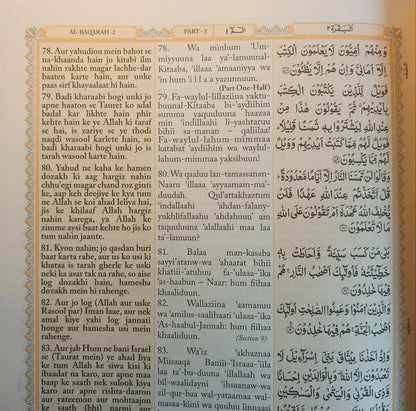 AL-BAQARAH -2
PART - 1
الٓمّٓ ١
البقرة ٢
78. Aur yahudion mein bahot se
na-khaanda hain jo kitabi ilm
nahin rakhte magar lachhe-dar
baaten karte hain, aur unke
paas sirf khayalaat hi hain.
79. Badi kharaabi hogi unki jo
apne haaton se Tauret ko adal
badal kar likhte hain phir
kehte hain ke ye Allah ki taraf
se hai, is zariye se ye thodi
naqdi wasool karlete hain, so
badi kharaabi hogi unki jo is
tarah wasool karte hain.
80. Yahud ne kaha ke hamen
dozakh ki aag hargiz nahin
chhu'egi magar chand roz ginti
ke, aap keh deejiye ke kya tum
ne Allah se koi ahad leliya hai,
jis ke khilaaf Allah hargiz
nahin karega, ya Allah ke
zimme aysi baat kehte ho jis ko
tum nahin jaante.
81. Kyon nahin; jo qasdan buri
baat karta rahe, aur us ko usi ki
khataa is tarah gherle ke uski
neki ka asar tak na rahe, so aise
log dozakhi hain, hamesha
dozakh mein hi rahenge.
82. Aur jo log (Allah aur uske
Rasool par) Iman laae, aur nek
amal kiye vahi log jannati
honge aur hamesha usi mein
rahenge.
83. Aur jab Hum ne bani Israel
se (Taurat mein) ye ahad liya
ke Allah ke siwa kisi ki
ibaadat na karo, aur apne maa
baap ke saath nek sulook kiya
karo aur apne rishta-daaron
aur yateemon aur mohtaajon
ke saath (bhi) narmi aur
78. Wa minhum 'Um-
miyyuuna laa ya'-lamuunal-
Kitaaba, 'illaaa 'amaaniyya wa
'in hum 'i l l a a yazunnuun.
(Part One-Half)
79. Fa-waylul-lillaziina yaktu-
buunal-Kitaabi bi-'aydiihim
summa yaquuluuna haazaa
min 'indillaahi li-yashtaruu
bihii sa-manan – qaliilaa!
Fa-waylul-lahum-mimmaa
katabat 'aydiihim wa waylul-
lahum-mimmaa yaksibuun!
80. Wa qaaluu lan-tamassanan-
Naaru 'illaaa 'ayyaamam-ma'-
duudah. Qul'attakhaztum
'indallaahi 'ahdan-falany-
yukhlifallaahu 'ahdahuuu 'am
taquuluuna 'alallaahi maa laa
ta'-lamuun?
81. Balaa man-kasaba
sayyi'atanw-wa 'ahaatat bihii
khatiii-'atuhuu fa-'ulaaa-'ika
'as-haabun – Naar: hum fiihaa
khaaliduun.
82. Wallaziina 'aamanuu
wa 'amilus-saalihaati 'ulaaa-'ika
'As-haabul-Jannah: hum fiihaa
khaaliduun.
(Section 9)
83. Wa'iz 'akhaznaa
Miisaaqa Baniii-'Israaa-'iila
laa ta'-buduuna 'illallaah wa
bil-waalidayni 'ihsaanaw-wa
zil-qur baa wal-yataamaa wal-
masaa-kiini wa quuluu linnaasi
وَمِنْهُمْ أُمِّيُّونَ لَا يَعْلَمُونَ الْكِتٰبَ
إِلَّا أَمَانِيَّ وَإِنْ هُمْ إِلَّا يَظُنُّونَ ﴿٧٨﴾
فَوَيْلٌ لِّلَّذِينَ يَكْتُبُونَ الْكِتٰبَ
بِأَيْدِيهِمْ ثُمَّ يَقُولُونَ هٰذَا مِنْ
عِنْدِ اللهِ لِيَشْتَرُوا بِهٖ ثَمَنًا قَلِيلًا
فَوَيْلٌ لَّهُمْ مِّمَّا كَتَبَتْ أَيْدِيهِمْ وَوَيْلٌ
لَّهُمْ مِّمَّا يَكْسِبُونَ ﴿٧٩﴾
وَقَالُوا لَنْ تَمَسَّنَا النَّارُ إِلَّا أَيَّامًا مَّعْدُودَةً
قُلْ أَتَّخَذْتُمْ عِنْدَ اللهِ عَهْدًا فَلَنْ
يُّخْلِفَ اللهُ عَهْدَهٗ أَمْ تَقُولُونَ عَلَى اللهِ
مَا لَا تَعْلَمُونَ ﴿٨٠﴾
بَلٰى مَنْ كَسَبَ سَيِّئَةً وَّأَحَاطَتْ بِهٖ
خَطِيئَتُهٗ فَأُولٰئِكَ أَصْحٰبُ النَّارِ هُمْ
فِيهَا خٰلِدُونَ ﴿٨١﴾
وَالَّذِينَ آمَنُوا وَعَمِلُوا الصّٰلِحٰتِ أُولٰئِكَ
أَصْحٰبُ الْجَنَّةِ هُمْ فِيهَا خٰلِدُونَ ﴿٨٢﴾
وَإِذْ أَخَذْنَا مِيثَاقَ بَنِي إِسْرَاءِيلَ لَا
تَعْبُدُونَ إِلَّا اللهَ وَبِالْوَالِدَيْنِ إِحْسَانًا